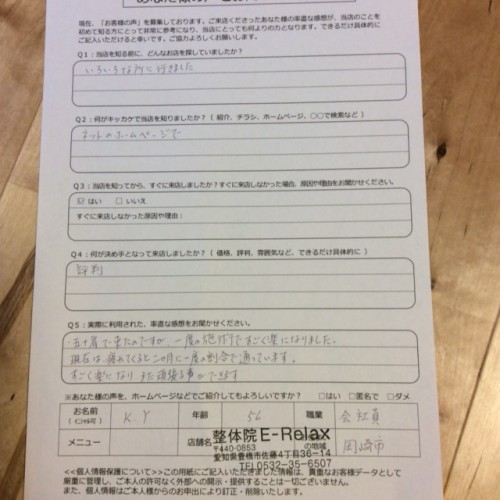 現在、「お客様の声」を募集しております。ご来店くださったあなた様の率直な感想が、当店のことを
初めて知る方にとって非常に参考になり、当店にとっても何よりの力となります。できるだけ具体的に
ご記入いただけると幸いです。ご協力よろしくお願いします。
Q1:当店を知る前に、どんなお店を探していましたか?
いろいろな所に行きました
Q2:何がキッカケで当店を知りましたか?( 紹介、チラシ、ホームページ、○○で検索など )
ネットのホームページで
Q3:当店を知ってから、すぐに来店しましたか?すぐに来店しなかった場合、原因や理由をお聞かせください。
☑ はい □ いいえ
すぐに来店しなかった原因や理由:
Q4:何が決め手となって来店しましたか?( 価格、評判、雰囲気など、できるだけ具体的に )
評判
Q5:実際に利用された、率直な感想をお聞かせください。
五十肩で来たのですが、一度の施術ですごく楽になりました。
現在は疲れてくると二ヶ月に一度の割合で通っています。
すごく楽になり、また頑張る事ができます
※あなた様の声を、ホームページなどでご紹介してもよろしいですか? □はい □匿名で □ダメ
お名前 K.Y 年齢 56 職業 会社員
(イニシャル可)
メニュー 店舗名 整体院 E-Relax の地域 岡崎市
〒440-0853
愛知県豊橋市佐藤4丁目36-14
TEL0532-35-6507
<<個人情報保護について>>この用紙にご記入いただきました情報は、貴重なお客様データとして
厳重に管理し、ご本人の許可なく外部への開示・提供することは一切ございません。
また、個人情報はご本人様からのお申出により訂正・削除いたします。